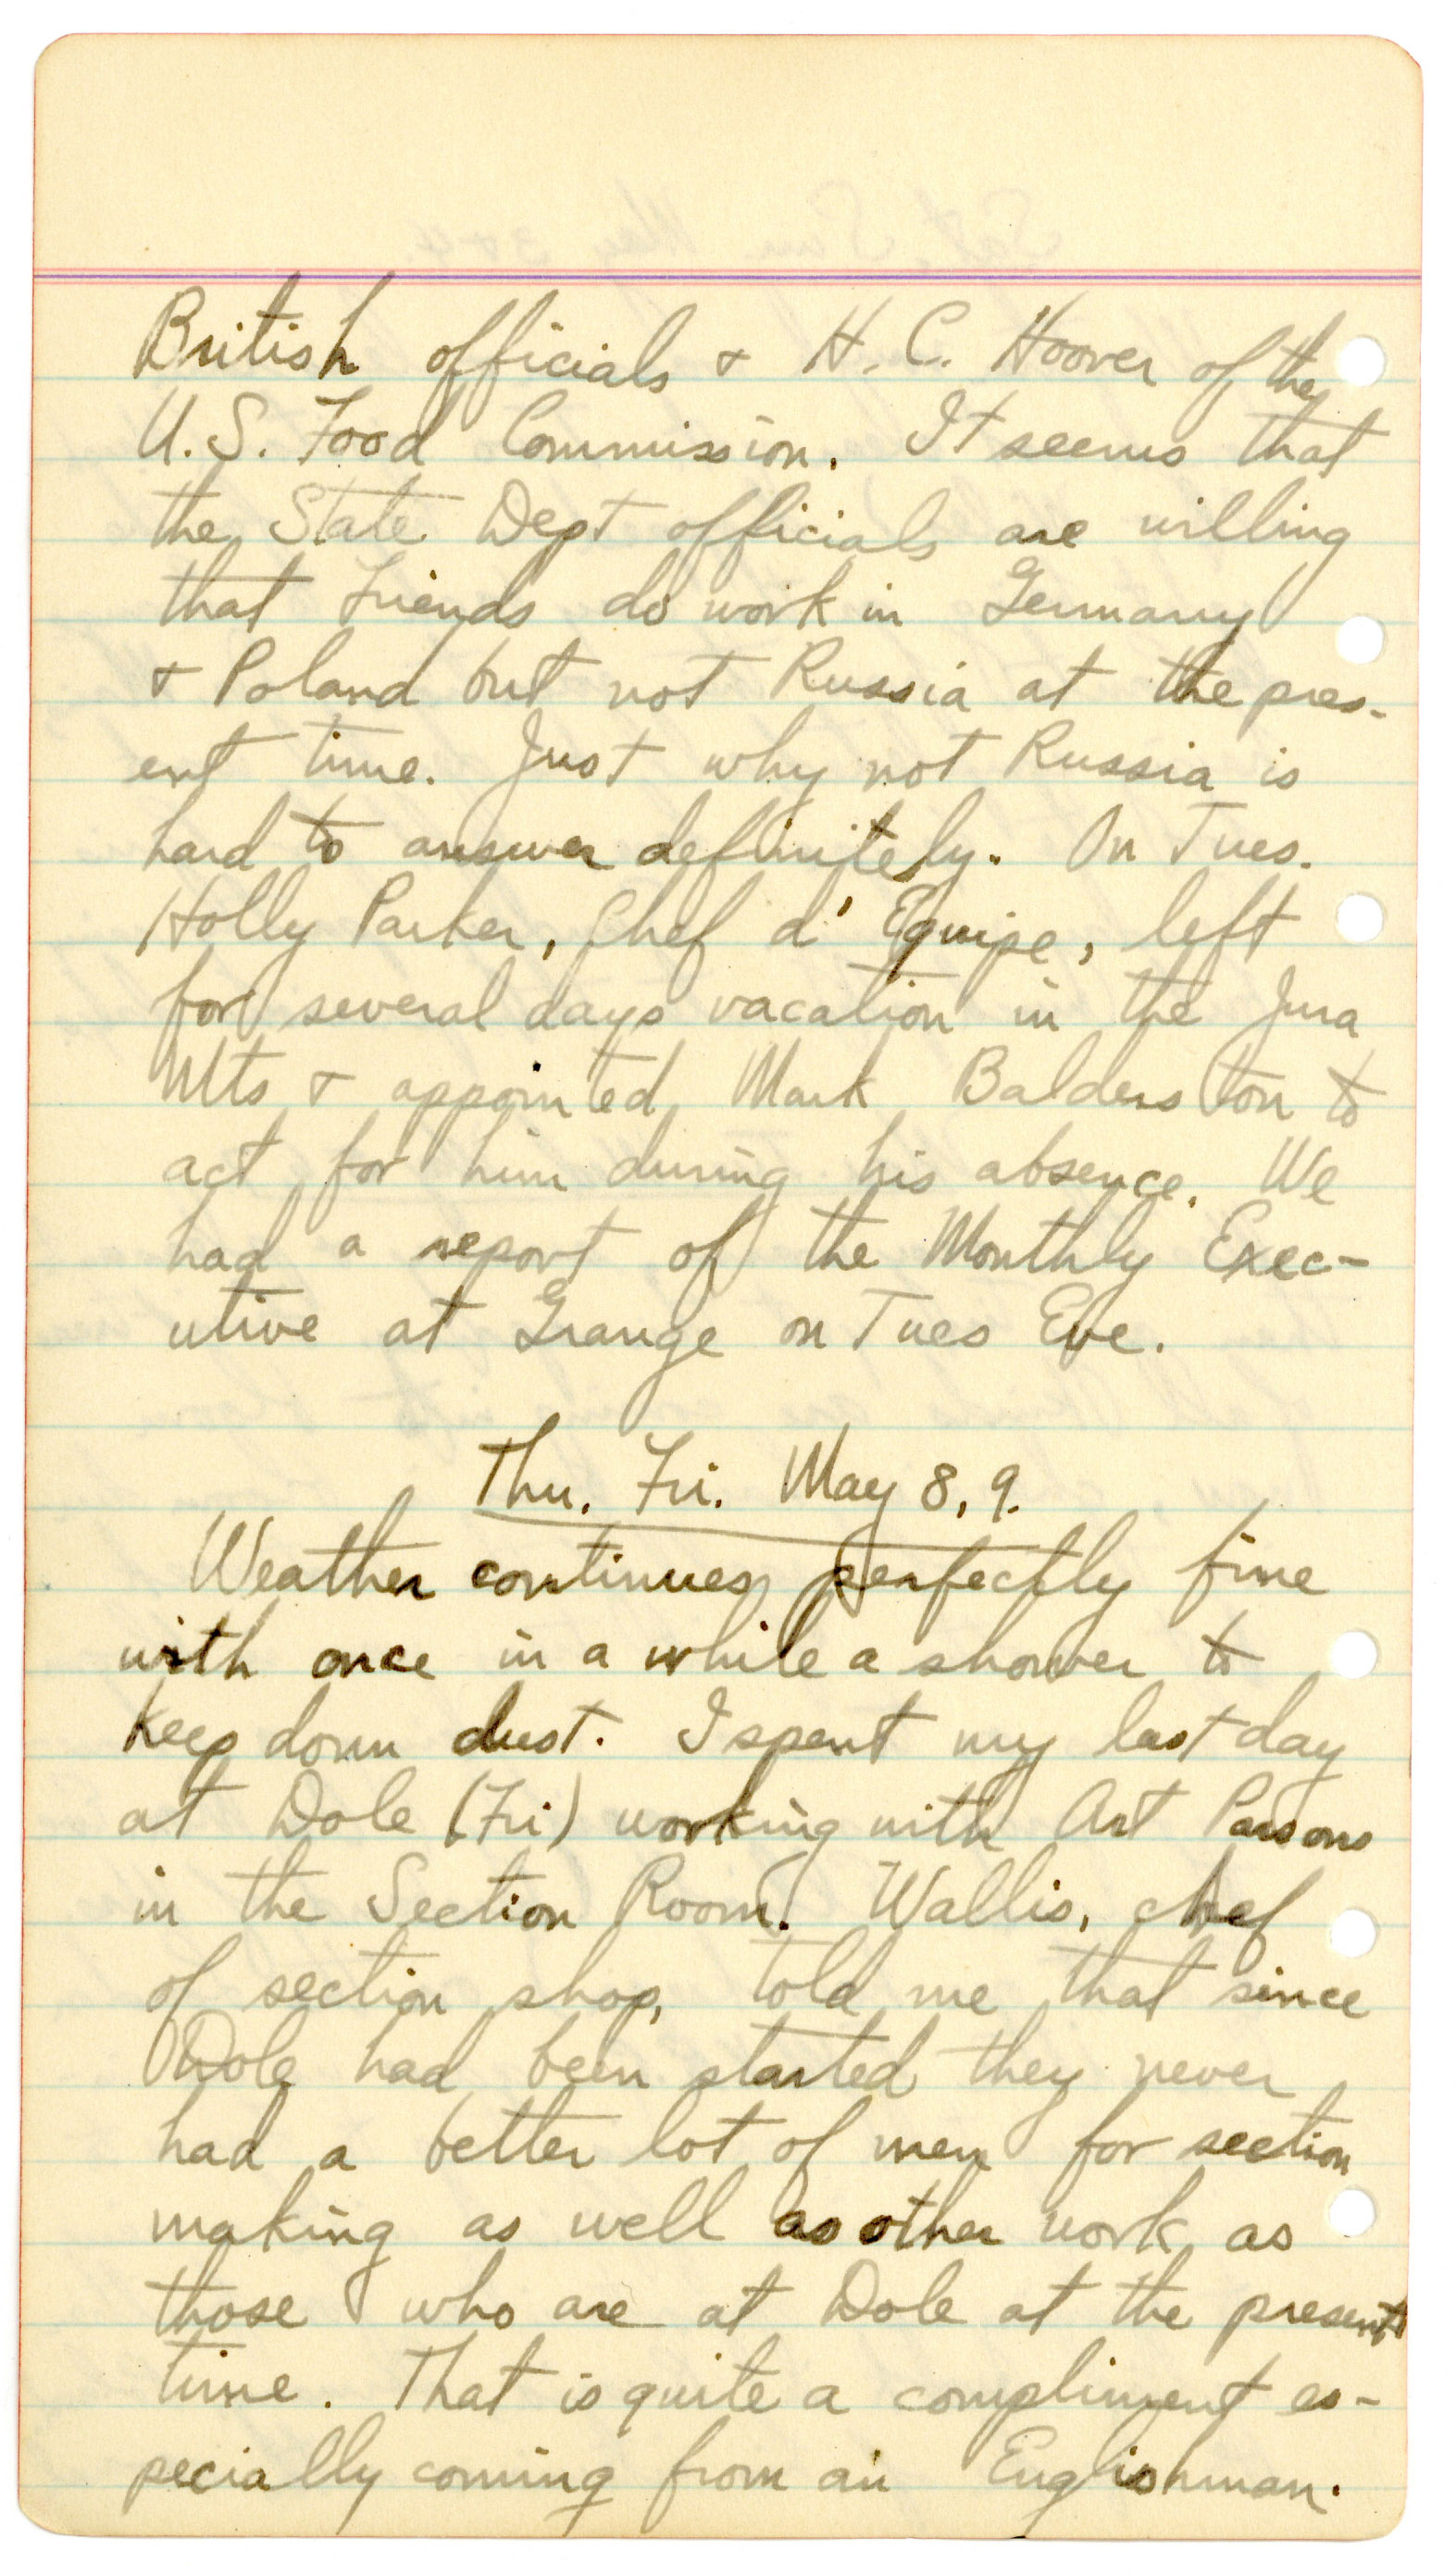 British officials & H. C. Hoover of the
U.S. Food Commission. It seems that
the State Dept officials are willing
that Friends do work in Germany
& Poland but not Russia at the pres-
ent time. Just why not Russia is
hard to answer definitely. On Tues.
Holly Parker, Chef d' Equipe, left
for several days vacation in the Jura
Mts & appointed Mark Balderston to
act for him during his absence. We
had a report of the Monthly Exec-
utive at Grange on Tues Eve.
Thu. Fri. May 8, 9.
Weather continues perfectly fine
with once in a while a shower to
keep down dust. I spent my last day
at Dole (Fri) working with Art Parsons
in the Section Room. Wallis, chef
of section shop, told me that since
Dole had been started they never
had a better lot of men for section
making as well as other work as
those who are at Dole at the present
time. That is quite a compliment es-
pecially coming from an Englishman.